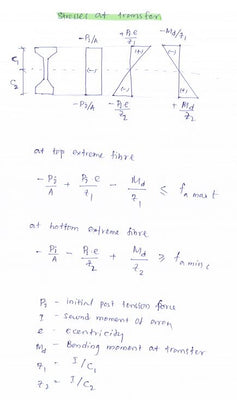 Stresses at transfer
+Pi e / Z1
-Md/Z1
-Pi/A
(+)
(-)
C1
C2
(-)
(-)
(+)
-Pi/A
-Pi e / Z2
+Md / Z2
at top extreme fibre
-Pi/A + Pi e/Z1 - Md/Z1 ≤ fa max t
at bottom extreme fibre
-Pi/A - Pi e/Z2 + Md/Z2 ≥ fa min c
Pi - initial post tension force
I - second moment of area
e - eccentricity
Md - Bending moment at transfer
Z1 - I/C1
Z2 - I/C2